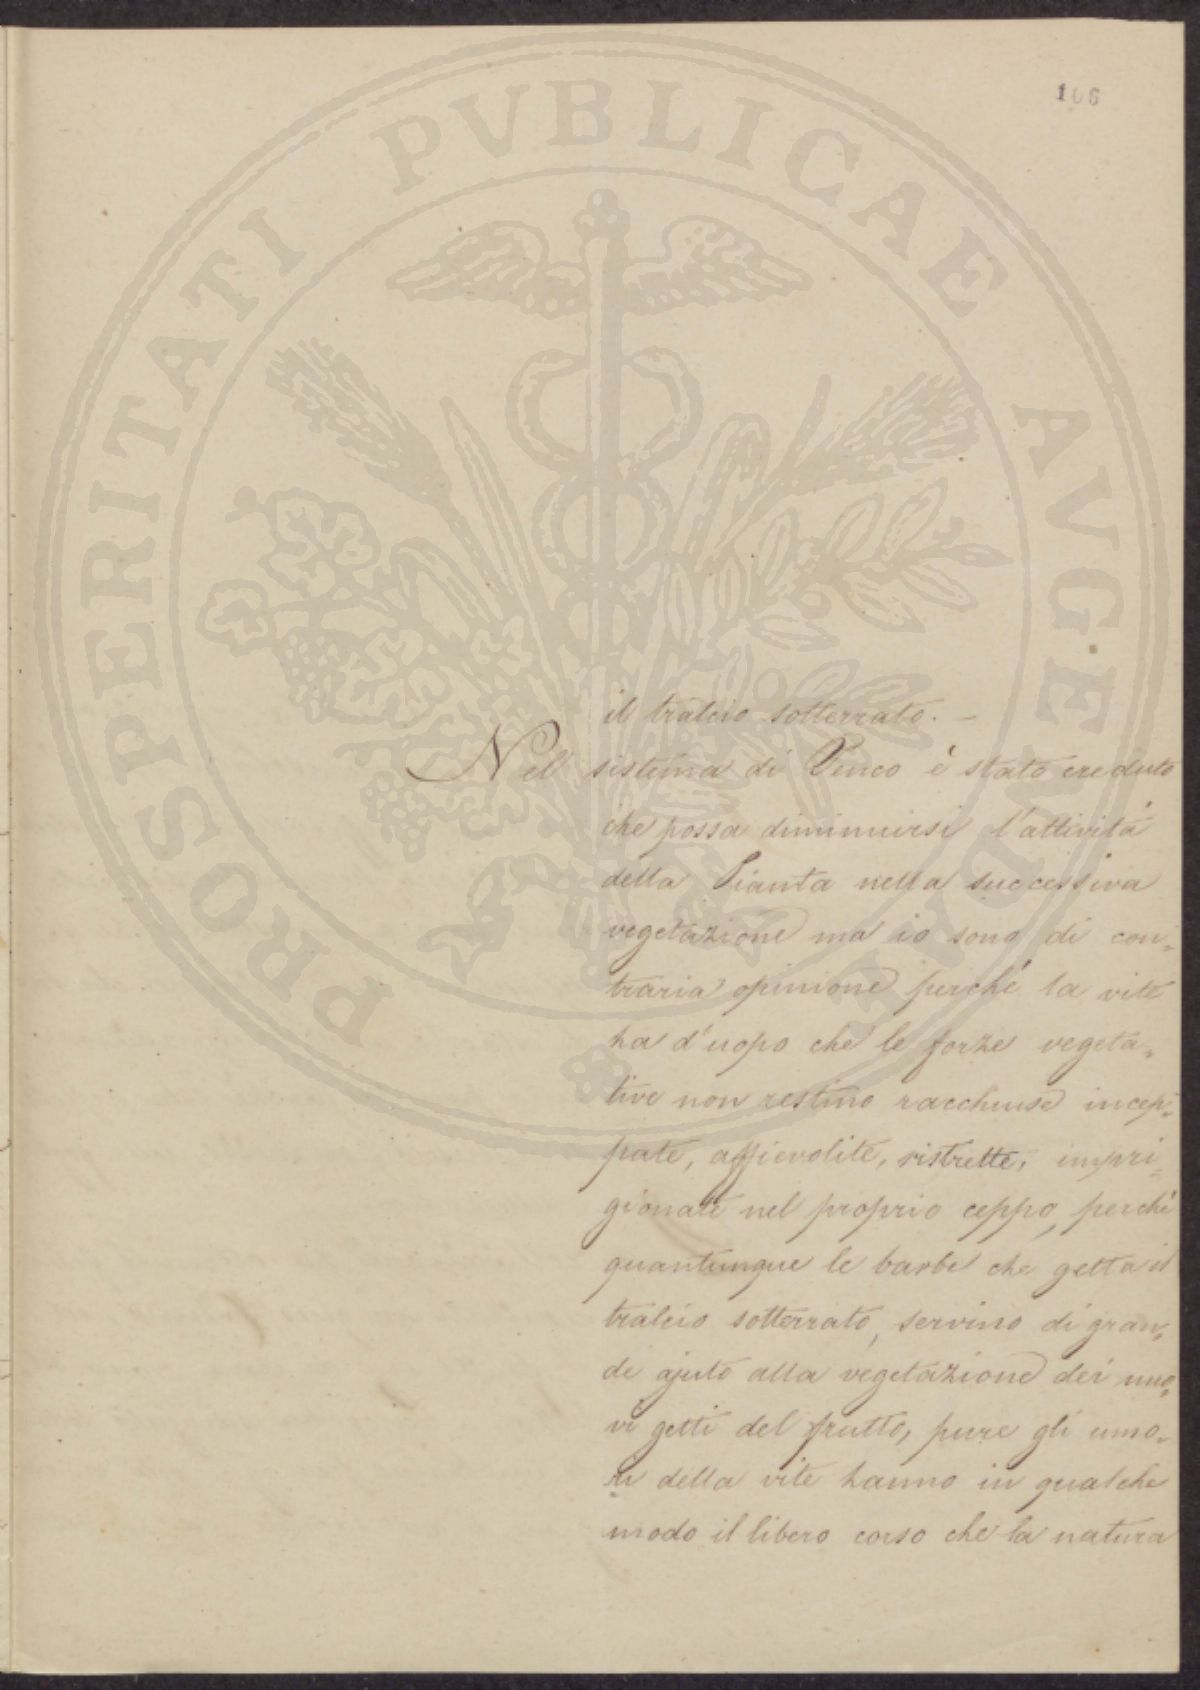 106
PROSPERITATI PVBLICAE AVGENDAE
il tralcio sotterrato. –
Nel sistema di Penco è stato creduto
che possa diminuirsi l'attività
della Pianta nella successiva
vegetazione ma io sono di con,,
traria opinione perchè la vite
ha d'uopo che le forze vegeta,,
tive non restino racchiuse incep,,
pate, affievolite, ristrette, impri,,
gionate nel proprio ceppo, perchè
quantunque le barbe che getta il
tralcio sotterrato, servino di gran,,
de ajuto alla vegetazione dei nuo,,
vi getti del frutto, pure gli umo,,
ri della vite hanno in qualche
modo il libero corso che la natura